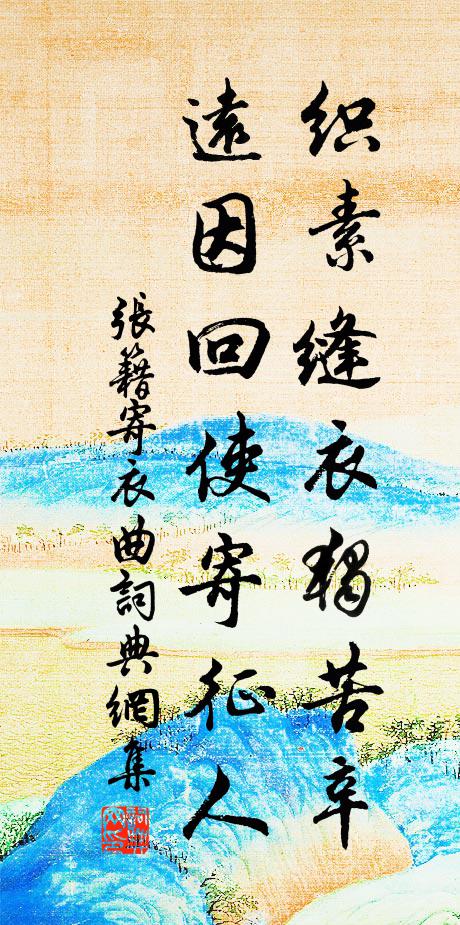 织素缝衣独苦辛
遠因回使寄征人
張籍寄衣曲詞典網集